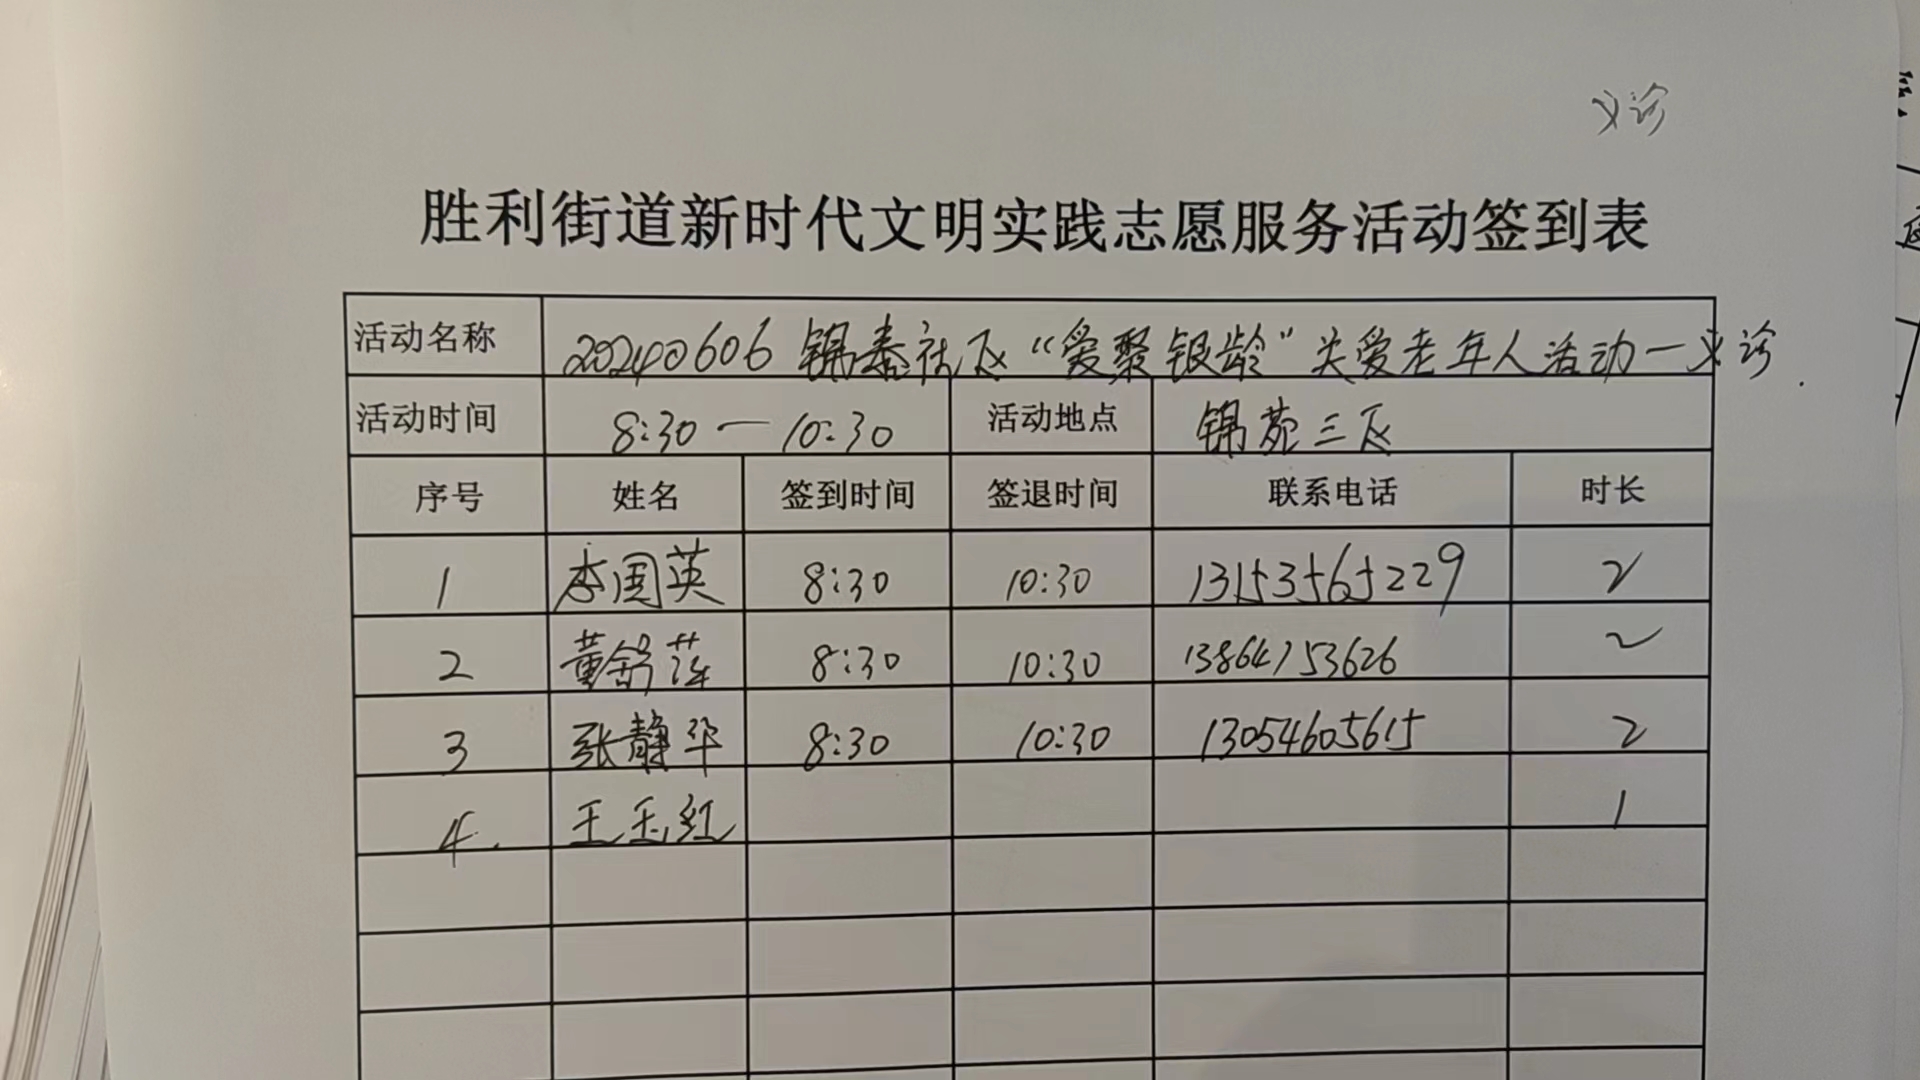 义诊
胜利街道新时代文明实践志愿服务活动签到表
活动名称 20240606 锦泰社区“爱聚银龄”关爱老年人活动—义诊.
活动时间 8:30—10:30 活动地点 锦苑三区
序号 姓名 签到时间 签退时间 联系电话 时长
1 李国英 8:30 10:30 13153565229 2
2 董舒萍 8:30 10:30 13864753626 2
3 张静华 8:30 10:30 13054605615 2
4. 王玉红 1